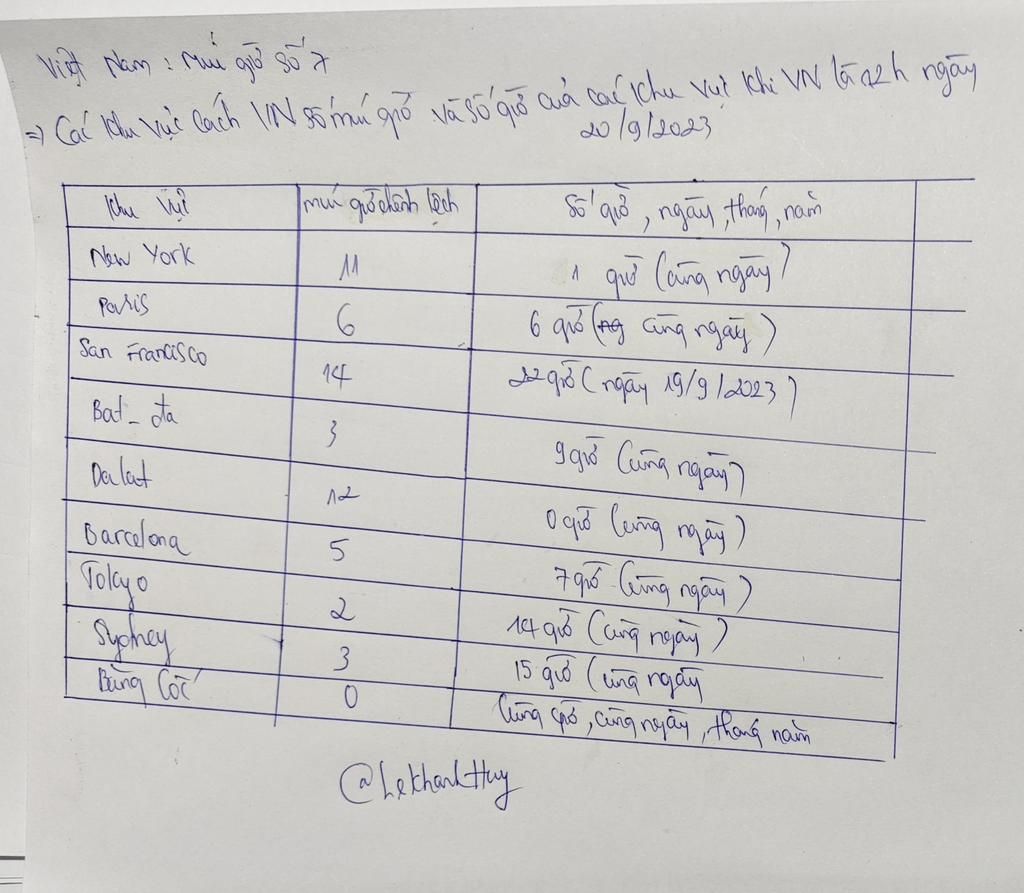 Việt Nam : múi giờ số 7
=> Các khu vực cách VN số múi giờ và số giờ của các khu vực khi VN là 12h ngày
20/9/2023
Khu vực múi giờ chênh lệch Số giờ, ngày, tháng, năm
New York 11 1 giờ (cùng ngày)
Paris 6 6 giờ (ng cùng ngày)
San Francisco 14 22 giờ (ngày 19/9/2023)
Bat-đa 3 9 giờ (cùng ngày)
Dalat 12 0 giờ (cùng ngày)
Barcelona 5 7 giờ (cùng ngày)
Tokyo 2 14 giờ (cùng ngày)
Sydney 3 15 giờ (cùng ngày
Băng Cốc 0 Cùng giờ, cùng ngày, tháng năm
@LekhanhHuy